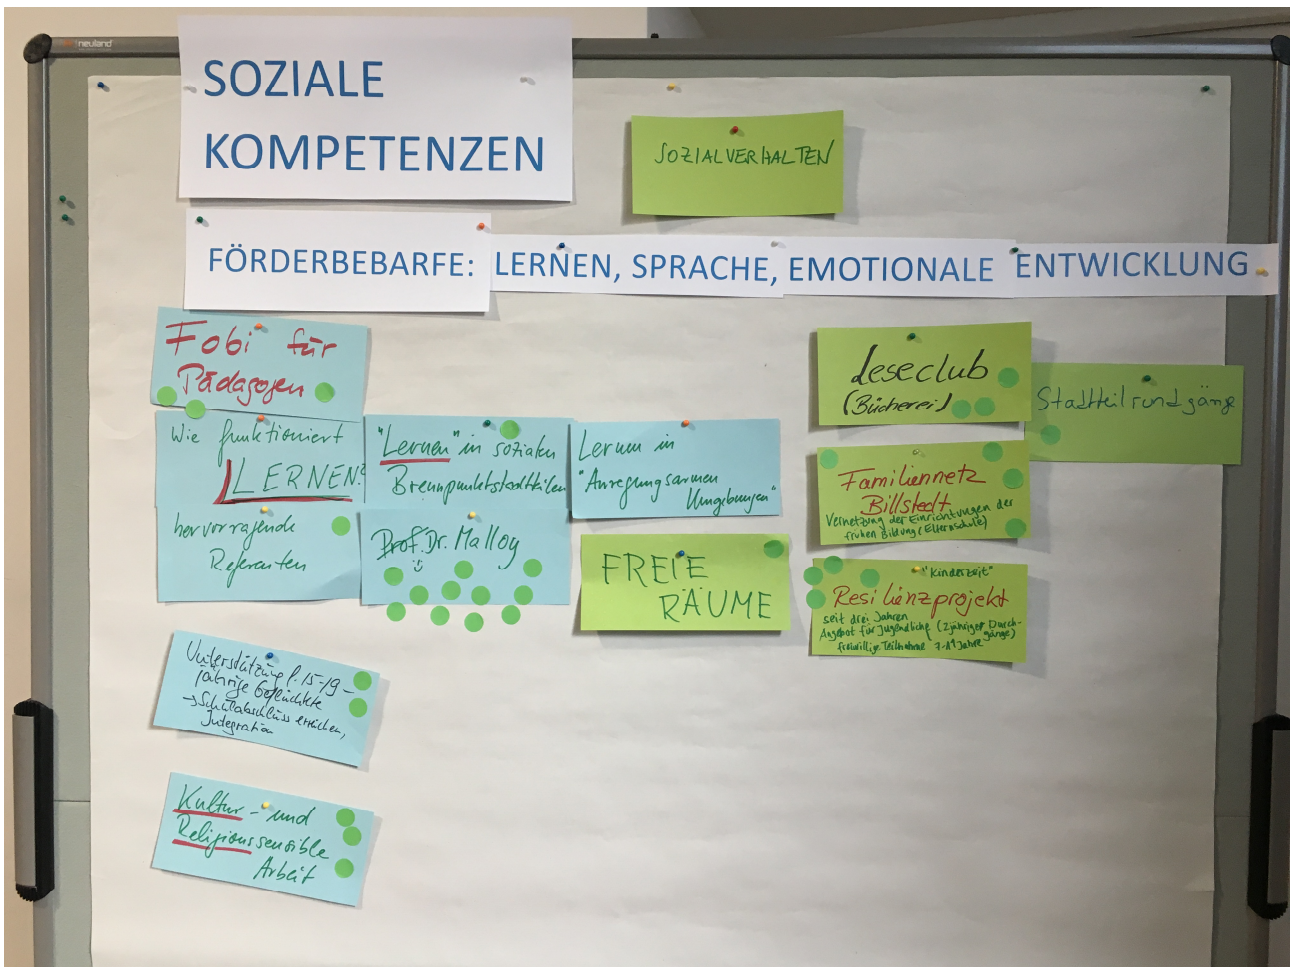 neuland
SOZIALE
KOMPETENZEN
SOZIALVERHALTEN
FÖRDERBEBARFE: LERNEN, SPRACHE, EMOTIONALE ENTWICKLUNG
Fobi für
Pädagogen
Wie funktioniert
LERNEN?
hervorragende
Referenten
"Lernen" in sozialen
Brennpunktstadtteilen
Prof. Dr. Malloy
Lernen in
"Anregungsarmen
Umgebungen"
FREIE
RÄUME
Leseclub
(Bücherei)
Stadtteilrundgänge
Familiennetz
Billstedt
Vernetzung der Einrichtungen der
frühen Bildung (Elternschule)
"Kinderzeit"
Resilienzprojekt
seit drei Jahren
Angebot für Jugendliche (2jähriger Durch-
gänge)
freiwillige Teilnahme 7-11 Jahre
Unterstützung f. 15-19-
jährige Geflüchtete
→ Schulabschluss erreichen,
Integration
Kultur- und
Religionssensible
Arbeit